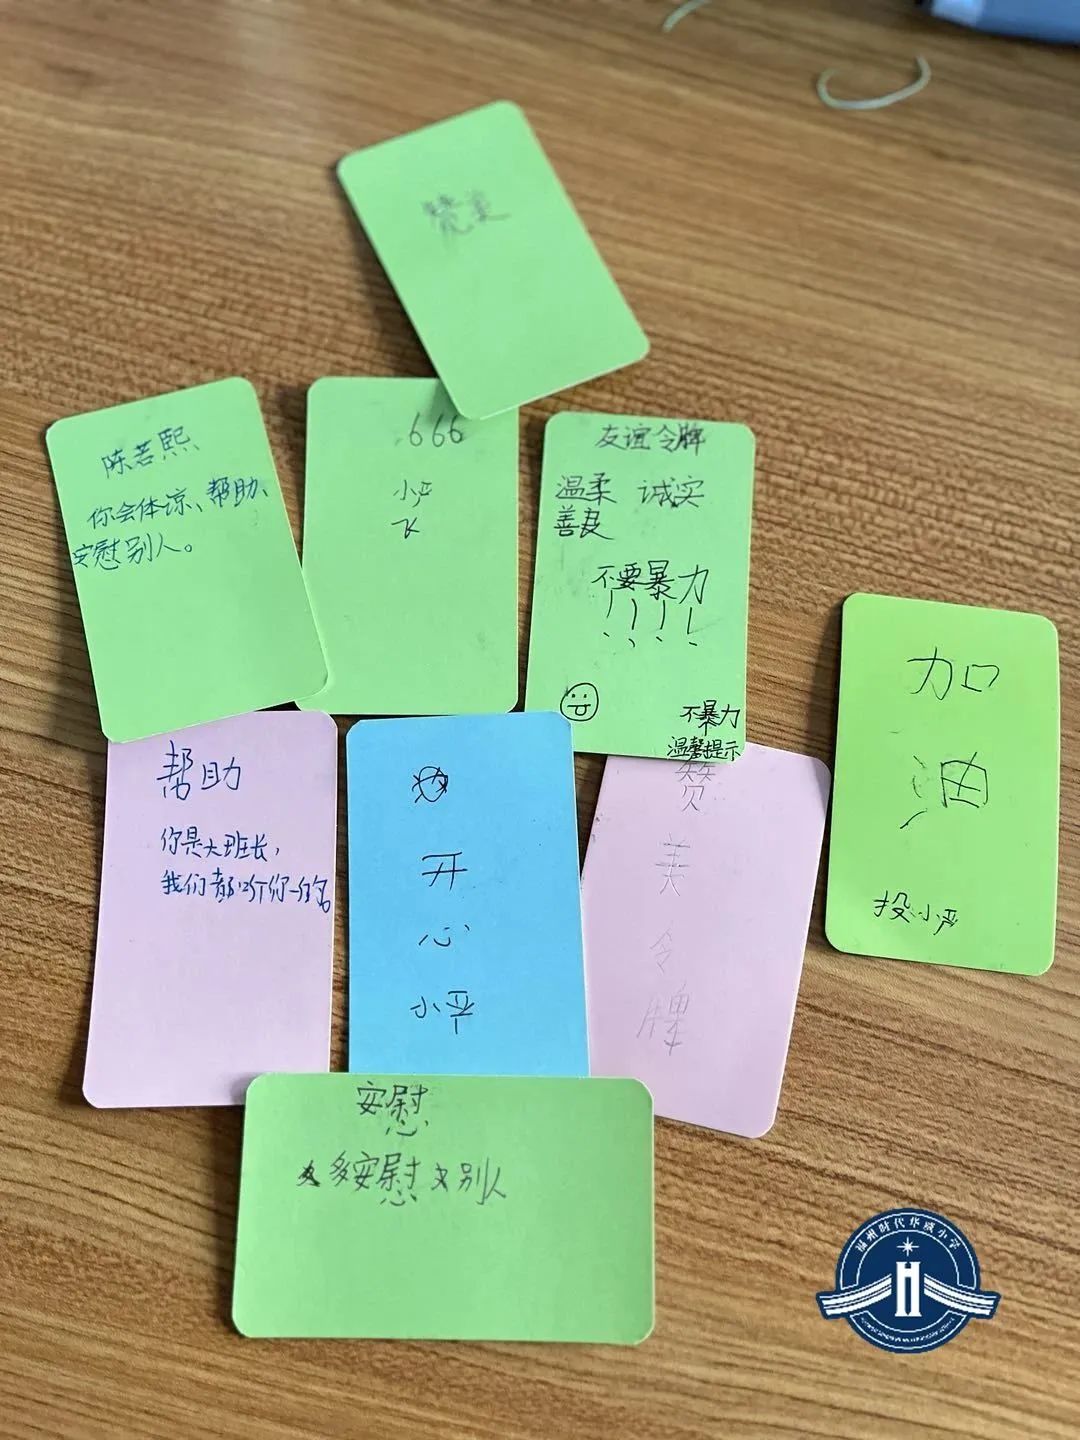 赞美
陈若熙
你会体凉、帮助、
安慰别人。
666
小严
飞
友谊令牌
温柔 诚实
善良
不要暴力
！！！！
不暴力
温馨提示
加
油
投小严
帮助
你是大班长，
我们都听你的
开
心
赞
美
令
牌
安慰
多安慰别人
福州时代华威小学